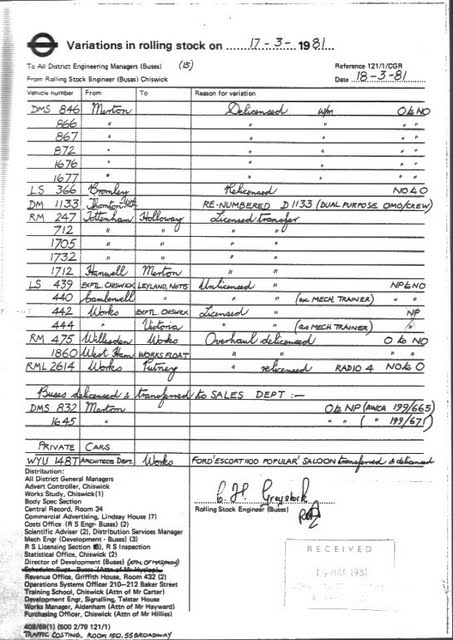 Variations in rolling stock on 17-3-1981.
To All District Engineering Managers (Buses) (15) Reference 121/1/CGR
From Rolling Stock Engineer (Buses) Chiswick Date 18-3-81
Vehicle number From To Reason for variation
DMS 846 Merton Delicensed w/m O to NO
866 " " " " "
867 " " " " "
872 " " " " "
1676 " " " " "
1677 " " " " "
LS 366 Bromley Relicensed NO to O
DM 1133 Thornton Hth. RE-NUMBERED D1133 (DUAL PURPOSE OMO/CREW)
RM 247 Tottenham Holloway Licensed transfer
712 " " " "
1705 " " " "
1732 " " " "
1712 Hanwell Merton " "
LS 439 EXPTL CHISWICK LEYLAND, NOTTS Unlicensed " NP to NO
440 Camberwell " " " (ex MECH TRAINER) " "
442 Works EXPTL CHISWICK Licensed " NP
444 " Victoria " " (as MECH TRAINER) "
RM 475 Willesden Works Overhaul delicensed O to NO
1860 West Ham WORKS FLOAT " " " "
RML 2614 Works Putney " relicensed RADIO 4 NO to O
Buses delicensed & transferred to SALES DEPT :—
DMS 832 Merton O to NP (AWCA 199/665)
1645 " " " ( " 199/671)
PRIVATE CARS
WYU 148T ARCHITECTS DEPT. Works FORD 'ESCORT 1100 POPULAR' SALOON transferred & delicensed
Distribution:
All District General Managers
Advert Controller, Chiswick
Works Study, Chiswick(1)
Body Spec Section
Central Record, Room 34
Commercial Advertising, Lindsay House (7)
Costs Office (R S Engr- Buses) (2)
Scientific Adviser (2), Distribution Services Manager
Mech Engr (Development - Buses) (3)
R S Licensing Section, R S Inspection
Statistical Office, Chiswick (2)
Director of Development (Buses)
Revenue Office, Griffith House, Room 432 (2)
Operations Systems Officer 210-212 Baker Street
Training School, Chiswick (Attn of Mr Carter)
Development Engr, Signalling, Telstar House
Works Manager, Aldenham (Attn of Mr Hayward)
Purchasing Officer, Chiswick (Attn of Mr Hillies)
408/69(1) (500 2/79 121/1)
TRAFFIC COSTING, ROOM 150, 55 BROADWAY
C. H. Greystock
Rolling Stock Engineer (Buses)
RECEIVED
MAR 1981